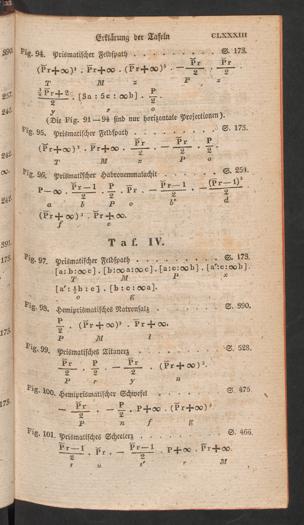 Erklärung der Tafeln CLXXXIII
Fig. 94. Prismatischer Feldspath . . . . . . . . S. 173.
(P̆r+∞)³ . P̆r+∞ . (P̆r+∞)³ . − P̄r/2 . P̄r/2 .
T M z P x
¾P̆r+2/2 . [3a : 5c : ∞b] . P/2 .
y r o
(Die Fig. 91—94 sind nur horizontale Projectionen).
Fig. 95. Prismatischer Feldspath . . . . . . . . S. 173.
(P̆r+∞)³ . P̆r+∞ . P̄r/2 . − P̄r/2 . P/2 .
T M x P o
Fig. 96. Prismatischer Habronemmalachit . . . . S. 254.
P−∞ . P̆r−1/2 . P/2 . P̆r . − P̆r−1/2 . − (P̆r−1)³/2 .
a b P o b' d
(P̆r+∞)³ . P̆r+∞.
f c
Taf. IV.
Fig. 97. Prismatischer Feldspath . . . . . . . . S. 173.
[a:b:∞c] . [b:∞a:∞c] . [a:c:∞b] . [a':c:∞b]
T M P x
[a':½b:c] . [b:c:∞a].
o g
Fig. 98. Hemiprismatisches Natronsalz . . . . S. 590.
P/2 . (P̆r+∞)³ . P̆r+∞.
P M l
Fig. 99. Prismatisches Titanerz . . . . S. 523.
P̄r/2 . P/2 . − P̄r/2 . (P̆r+∞)³.
P r y n
Fig. 100. Hemiprismatischer Schwefel . . . . S. 475
− P̄r/2 . − P/2 . P+∞ . (P̆r+∞)³
P n f g
Fig. 101. Prismatisches Scheelerz . . . . S. 466.
P̄r−1/2 . P̄r . − P̄r−1/2 . P+∞ . P̄r+∞.